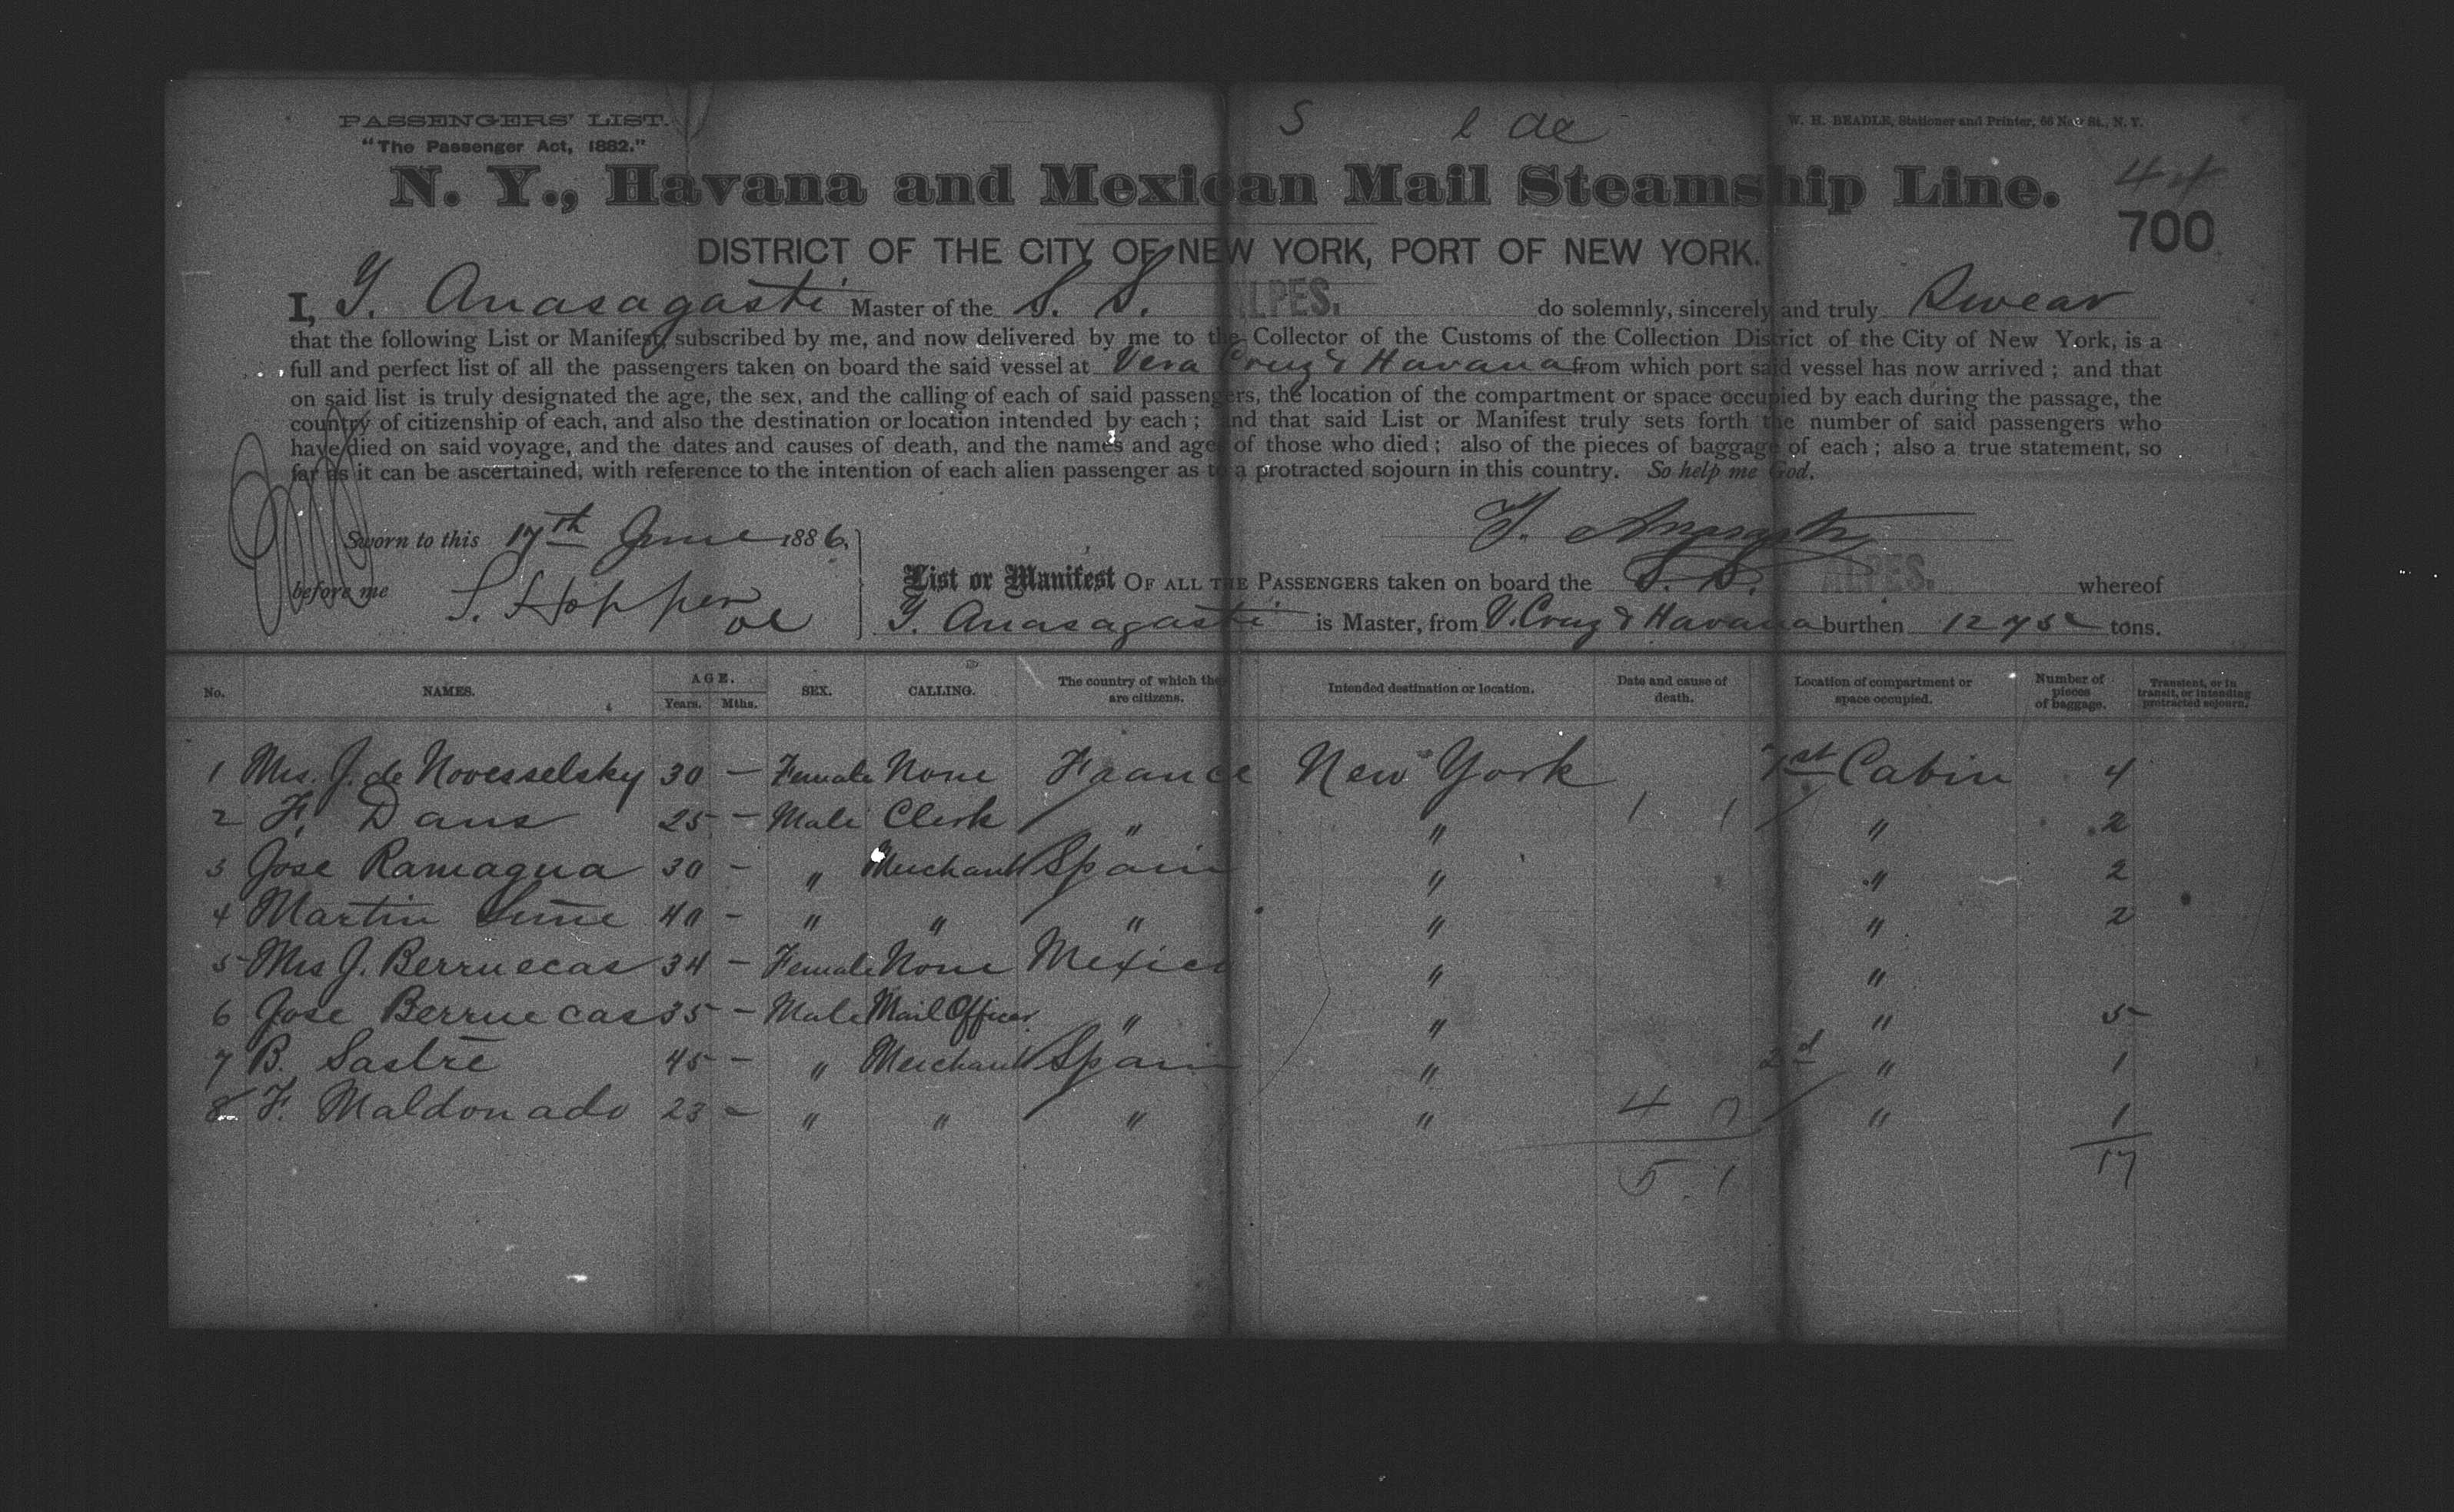 PASSENGERS' LIST.
"The Passenger Act, 1882."
W. H. BEADLE, Stationer and Printer, 66 New St., N. Y.
N. Y., Havana and Mexican Mail Steamship Line.
44
700
DISTRICT OF THE CITY OF NEW YORK, PORT OF NEW YORK.
I, Y. Anasagasti Master of the S. S. ALPES. do solemnly, sincerely and truly Swear
that the following List or Manifest, subscribed by me, and now delivered by me to the Collector of the Customs of the Collection District of the City of New York, is a
full and perfect list of all the passengers taken on board the said vessel at Vera Cruz & Havana from which port said vessel has now arrived; and that
on said list is truly designated the age, the sex, and the calling of each of said passengers, the location of the compartment or space occupied by each during the passage, the
country of citizenship of each, and also the destination or location intended by each; and that said List or Manifest truly sets forth the number of said passengers who
have died on said voyage, and the dates and causes of death, and the names and ages of those who died; also of the pieces of baggage of each; also a true statement, so
far as it can be ascertained, with reference to the intention of each alien passenger as to a protracted sojourn in this country. So help me God.
Sworn to this 17th June 1886,
before me S. Hopper
List or Manifest OF ALL THE PASSENGERS taken on board the S. S. ALPES. whereof
Y. Anasagasti is Master, from V. Cruz & Havana burthen tons.
No. NAMES. AGE. Years. Mths. SEX. CALLING. The country of which they are citizens. Intended destination or location. Date and cause of death. Location of compartment or space occupied. Number of pieces of baggage. Transient, or in transit, or intending protracted sojourn.
1 Mrs. J. de Novesselsky 30 — Female None France New York 1st Cabin 4
2 F. Dans 25 — Male Clerk " " 1 1 " 2
3 Jose Ramagua 30 — " Merchant Spain " " 2
4 Martin 40 — " " " " " 2
5 Mrs J. Berruecas 34 — Female None Mexico " "
6 Jose Berruecas 35 — Male Mail Officer " " " 5
7 B. Sastre 45 — " Merchant Spain " 2d " 1
8 F. Maldonado 23 — " " " " 4 0 " 1
5 1 17